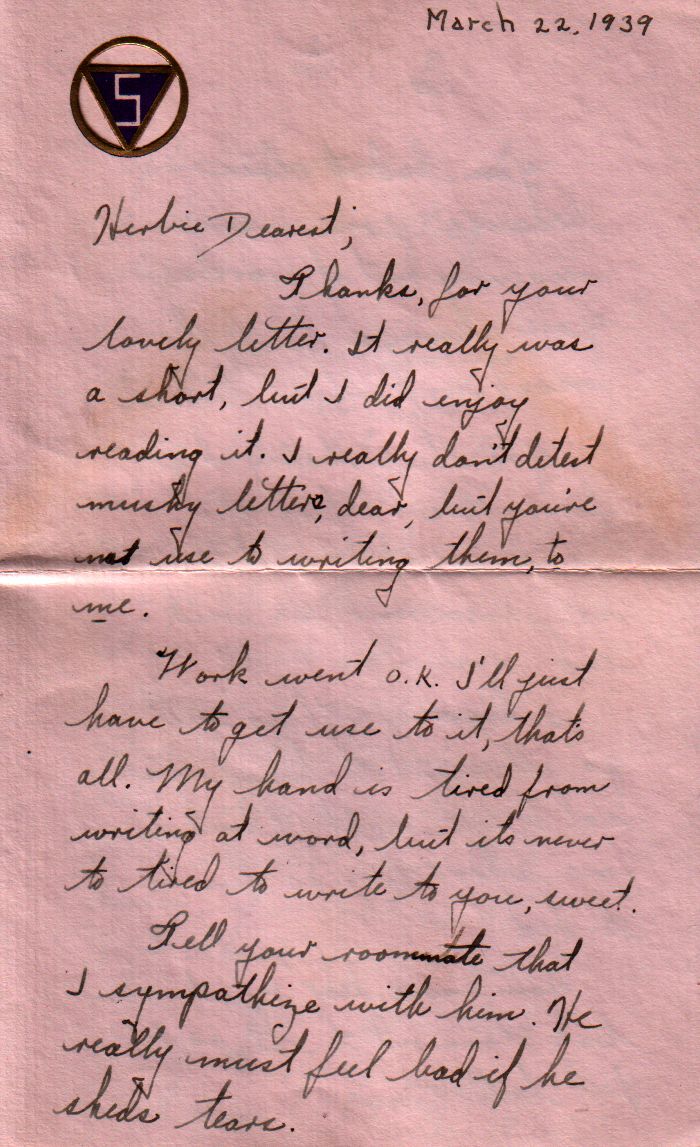 March 22, 1939
S
Herbie Dearest;
Thanks, for your
lovely letter. It really was
a short, but I did enjoy
reading it. I really don't detest
mushy letters, dear, but you're
not use to writing them, to
me.
Work went O.K. I'll just
have to get use to it, that's
all. My hand is tired from
writing at word, but its never
to tired to write to you, sweet.
Tell your roommate that
I sympathize with him. He
really must feel bad if he
sheds tears.